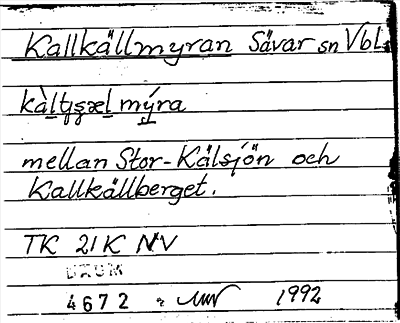 Kallkällmyran Sävar sn Vbl.
mýra
mellan Stor-Kälsjön och
Kallkällberget.
TK 21K NV
DAUM
4672 1992